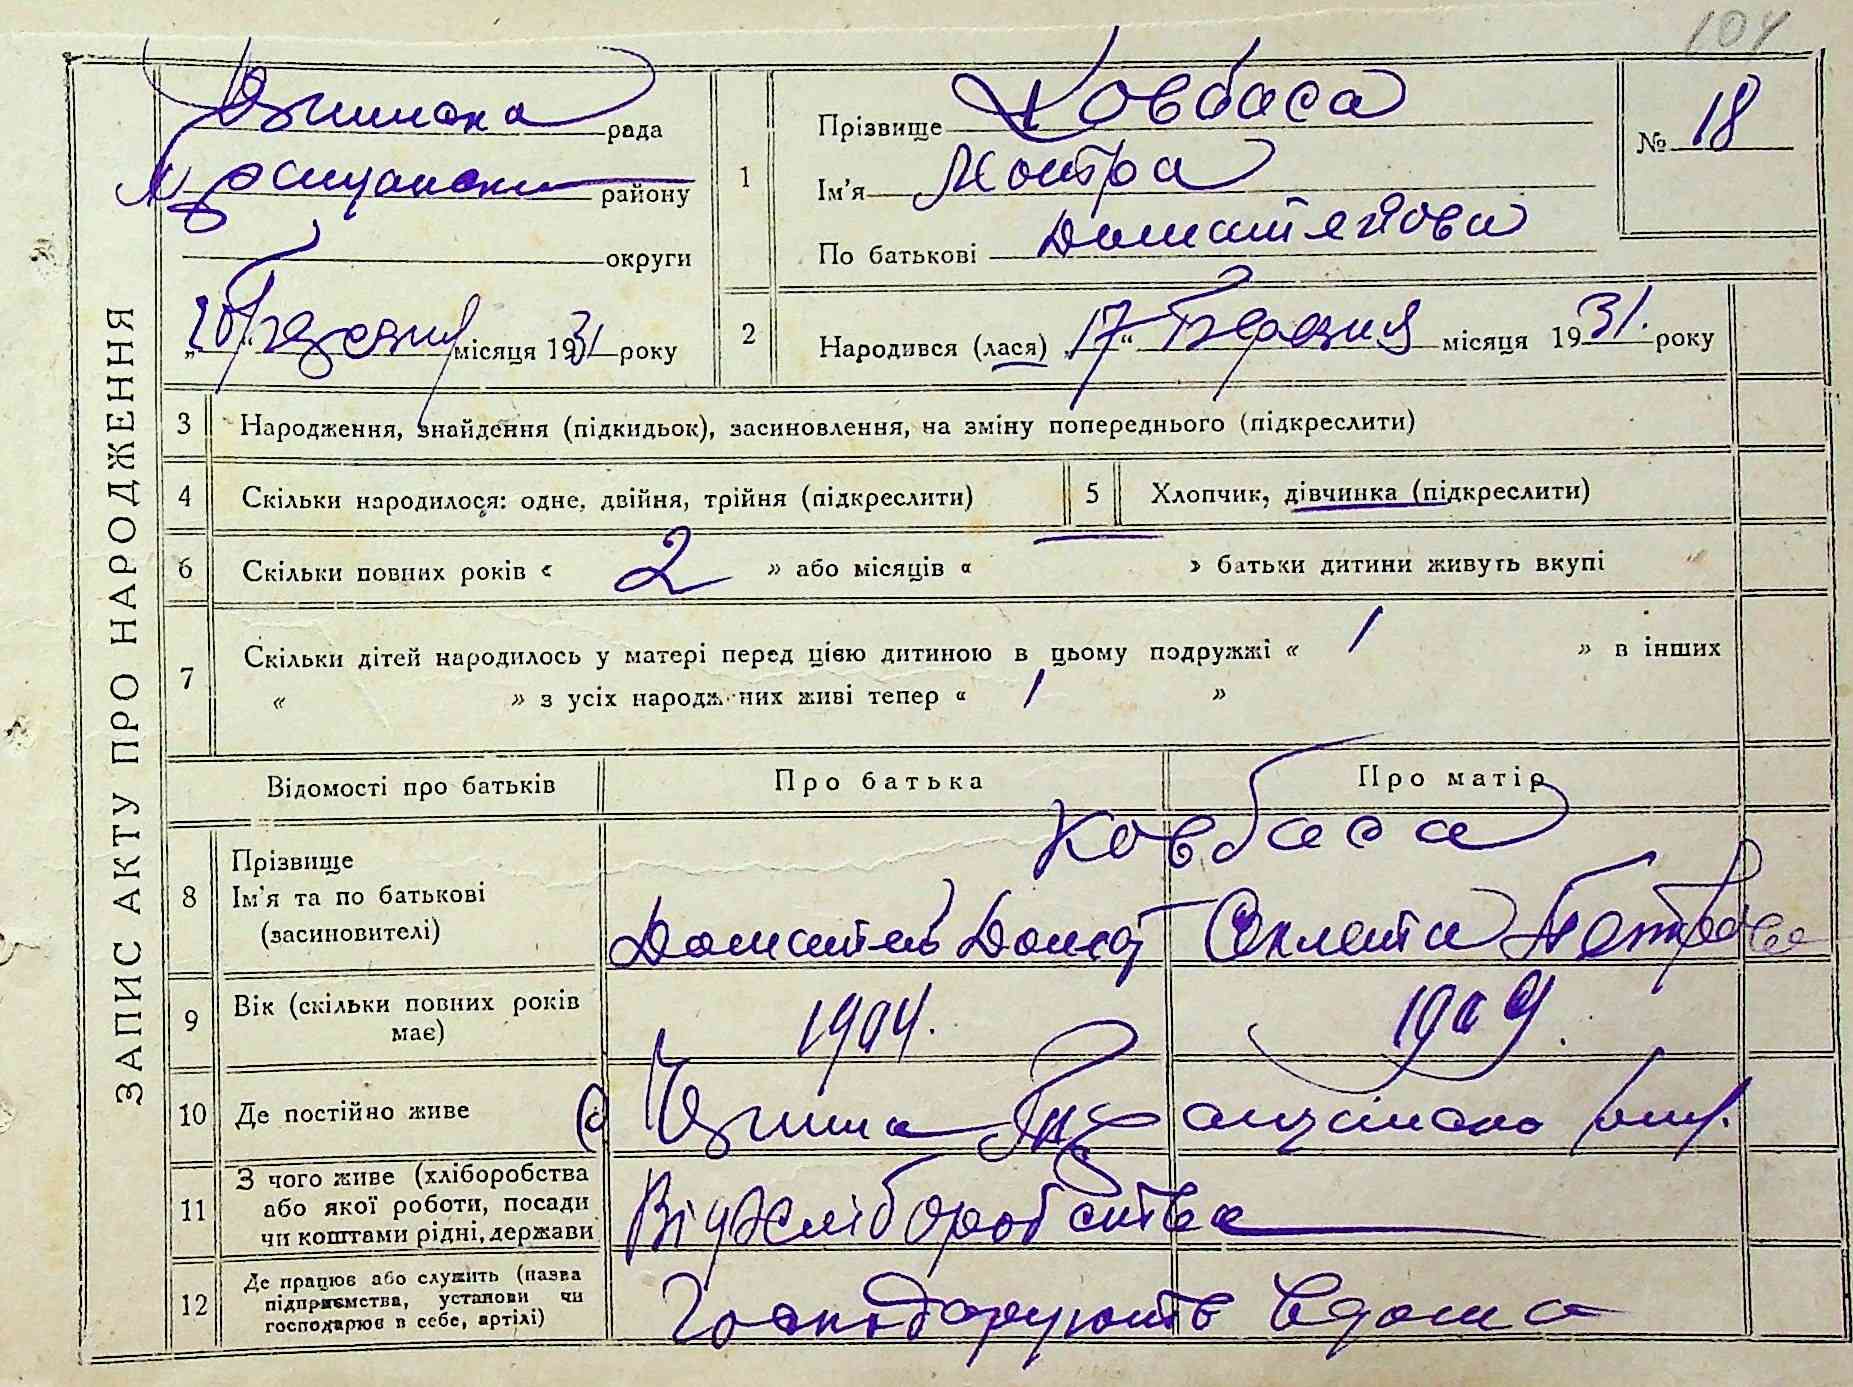 104
ЗАПИС АКТУ ПРО НАРОДЖЕННЯ
рада
району
округи
„20“ березня місяця 1931 року
1
Прізвище Ковбаса
Ім'я Мотря
По батькові
№ 18
2
Народився (лася) „17“ Березня місяця 1931. року
3 Народження, знайдення (підкидьок), засиновлення, на зміну попереднього (підкреслити)
4 Скільки народилося: одне, двійня, трійня (підкреслити)
5 Хлопчик, дівчинка (підкреслити)
6 Скільки повних років « 2 » або місяців « » батьки дитини живуть вкупі
7 Скільки дітей народилось у матері перед цією дитиною в цьому подружжі « 1 » в інших
« » з усіх народж них живі тепер « 1 »
Відомості про батьків
Про батька
Про матір
8 Прізвище
Ім'я та по батькові
(засиновителі)
Ковбаса
Петрова
9 Вік (скільки повних років
має)
1904.
1909.
10 Де постійно живе
11 З чого живе (хліборобства
або якої роботи, посади
чи коштами рідні, держави
Від хліборобства
12 Де працює або служить (назва
підприємства, установи чи
господарює в себе, артілі)
Господарують вдома